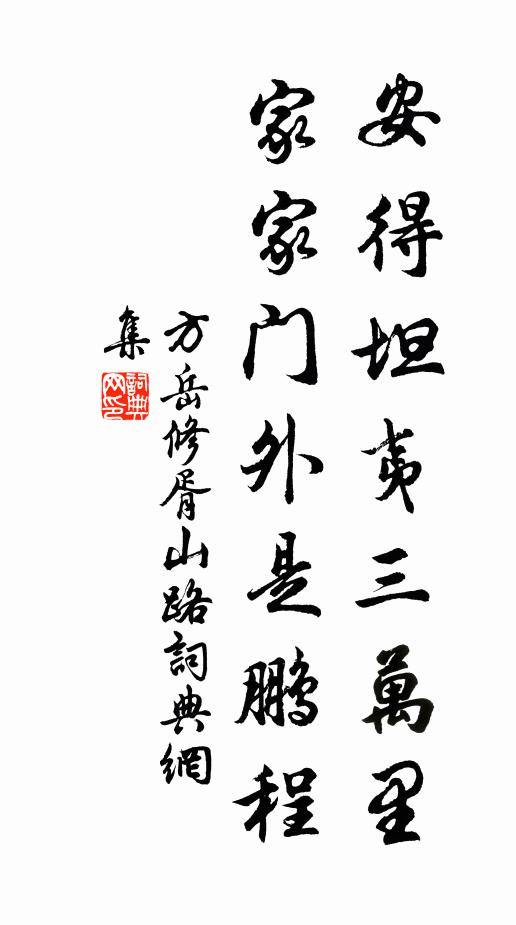 安得坦夷三萬里
家家门外是鹏程
方岳修胥山路詞典網
集
詞典
网印